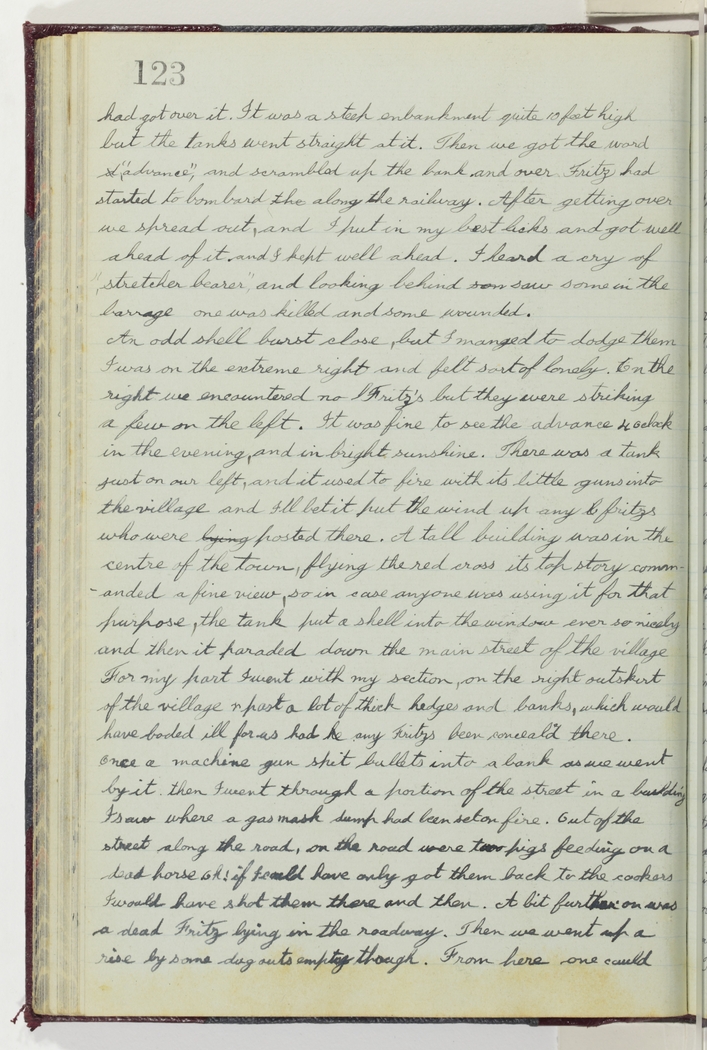 123
had got over it. It was a steep enbankment quite 10 feet high
but the tanks went straight at it. Then we got the word
"advance", and scrambled up the bank and over Fritz had
started to bombard the along the railway. After getting over
we spread out, and I put in my best licks and got well
ahead of it. and I kept well ahead. I heard a cry of
"stretcher bearer", and looking behind son saw some in the
barrage one was killed and some wounded.
An odd shell burst close, but I manged to dodge them
I was on the extreme right and felt sort of lonely. On the
right we encountered no Fritz's but they were striking
a few on the left. It was fine to see the advance 4 oclock
in the evening, and in bright sunshine. There was a tank
just on our left, and it used to fire with its little guns into
the village and I'll bet it put the wind up any fritzs
who were lying posted there. A tall building was in the
centre of the town, flying the red cross its top story comm-
-anded a fine view, so in case anyone was using it for that
purpose, the tank put a shell into the window ever so nicely
and then it paraded down the main street of the village
For my part I went with my section, on the right outskirt
of the village n past a lot of thick hedges and banks, which would
have boded ill for us had he any Fritzs been conceal'd there.
Once a machine gun spit bullets into a bank as we went
by it. then I went through a portion of the street in a building
I saw where a gas mask dump had been set on fire. Out of the
street along the road, on the road were two pigs feeding on a
dead horse Oh! if I could have only got them back to the cookers
I would have shot them there and then. A bit further on was
a dead Fritz lying in the roadway. Then we went up a
rise by some dug outs empty though. From here one could